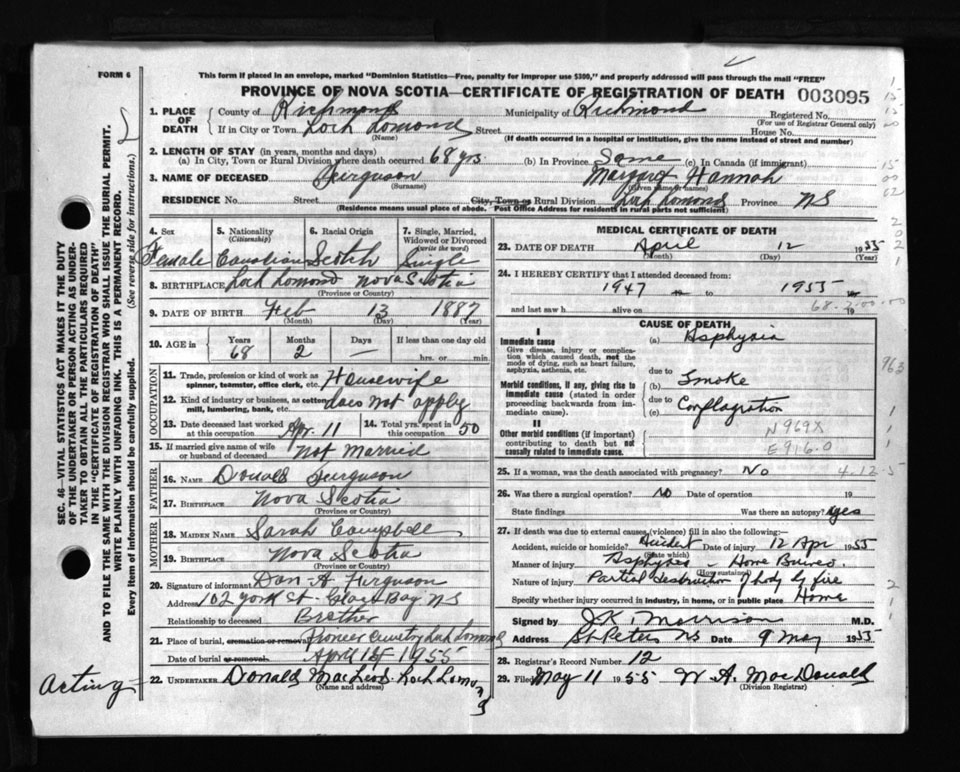 FORM 6
This form if placed in an envelope, marked "Dominion Statistics—Free, penalty for improper use $300," and properly addressed will pass through the mail "FREE"
PROVINCE OF NOVA SCOTIA—CERTIFICATE OF REGISTRATION OF DEATH 003095
1. PLACE OF DEATH County of Richmond Municipality of Richmond Registered No.
(For use of Registrar General only)
If in City or Town Loch Lomond Street House No.
(Name) (If death occurred in a hospital or institution, give the name instead of street and number)
2. LENGTH OF STAY (in years, months and days)
(a) In City, Town or Rural Division where death occurred 68 yrs. (b) In Province Same (c) In Canada (if immigrant)
3. NAME OF DECEASED Ferguson Margaret Hannah
(Surname) (Given name or names)
RESIDENCE No. Street City, Town or Rural Division Loch Lomond Province NS
(Residence means usual place of abode. Post Office Address for residents in rural parts not sufficient)
4. Sex 5. Nationality (Citizenship) 6. Racial Origin 7. Single, Married, Widowed or Divorced (write the word)
Female Canadian Scotch Single
8. BIRTHPLACE Loch Lomond Nova Scotia
(Province or Country)
9. DATE OF BIRTH Feb 13 1887
(Month) (Day) (Year)
10. AGE in Years Months Days If less than one day old
68 2 — hrs. or min.
OCCUPATION
11. Trade, profession or kind of work as spinner, teamster, office clerk, etc. Housewife
12. Kind of industry or business, as cotton mill, lumbering, bank, etc. does not apply
13. Date deceased last worked at this occupation Apr. 11 14. Total yrs. spent in this occupation 50
15. If married give name of wife or husband of deceased Not Married
FATHER
16. NAME Donald Ferguson
17. BIRTHPLACE Nova Scotia
(Province or Country)
MOTHER
18. MAIDEN NAME Sarah Campbell
19. BIRTHPLACE Nova Scotia
(Province or Country)
20. Signature of informant Dan A Ferguson
Address 102 York St. Glace Bay NS
Relationship to deceased Brother
21. Place of burial, cremation or removal Pioneer Cemetry Loch Lomond
Date of burial or removal. April 15 1955
Acting
22. UNDERTAKER Donald MacLeod. Loch Lomond
(Name and address)
MEDICAL CERTIFICATE OF DEATH
23. DATE OF DEATH April 12 1955
(Month) (Day) (Year)
24. I HEREBY CERTIFY that I attended deceased from:
1947 to 1955
and last saw h alive on 19
68-2-00-00
CAUSE OF DEATH
I
Immediate cause
Give disease, injury or complication which caused death, not the mode of dying, such as heart failure, asphyxia, asthenia, etc.
(a) Asphyxia
due to
Morbid conditions, if any, giving rise to immediate cause (stated in order proceeding backwards from immediate cause).
(b) Smoke
due to
(c) Conflagration
II
Other morbid conditions (if important) contributing to death but not causally related to immediate cause.
N969X
E916.0
25. If a woman, was the death associated with pregnancy? No 4-12-5
26. Was there a surgical operation? No Date of operation 19
State findings Was there an autopsy? Yes
27. If death was due to external causes (violence) fill in also the following:—
Accident, suicide or homicide? Accident Date of injury 12 Apr 1955
(State which)
Manner of injury Asphyxia - Home Burned.
(How sustained)
Nature of injury Partial destruction of body by fire
Specify whether injury occurred in industry, in home, or in public place Home
Signed by J.K. Morrison M.D.
Address St Peters NS Date 9 May 1955
28. Registrar's Record Number 12
29. Filed May 11 1955 W. A. MacDonald
(Division Registrar)
SEC. 46—VITAL STATISTICS ACT MAKES IT THE DUTY
OF THE UNDERTAKER OR PERSON ACTING AS UNDERTAKER TO OBTAIN ALL THE PARTICULARS REQUIRED
IN THE "CERTIFICATE OF REGISTRATION OF DEATH"
AND TO FILE THE SAME WITH THE DIVISION REGISTRAR WHO SHALL ISSUE THE BURIAL PERMIT.
WRITE PLAINLY WITH UNFADING INK. THIS IS A PERMANENT RECORD.
Every item of information should be carefully supplied. (See reverse side for instructions.)
963